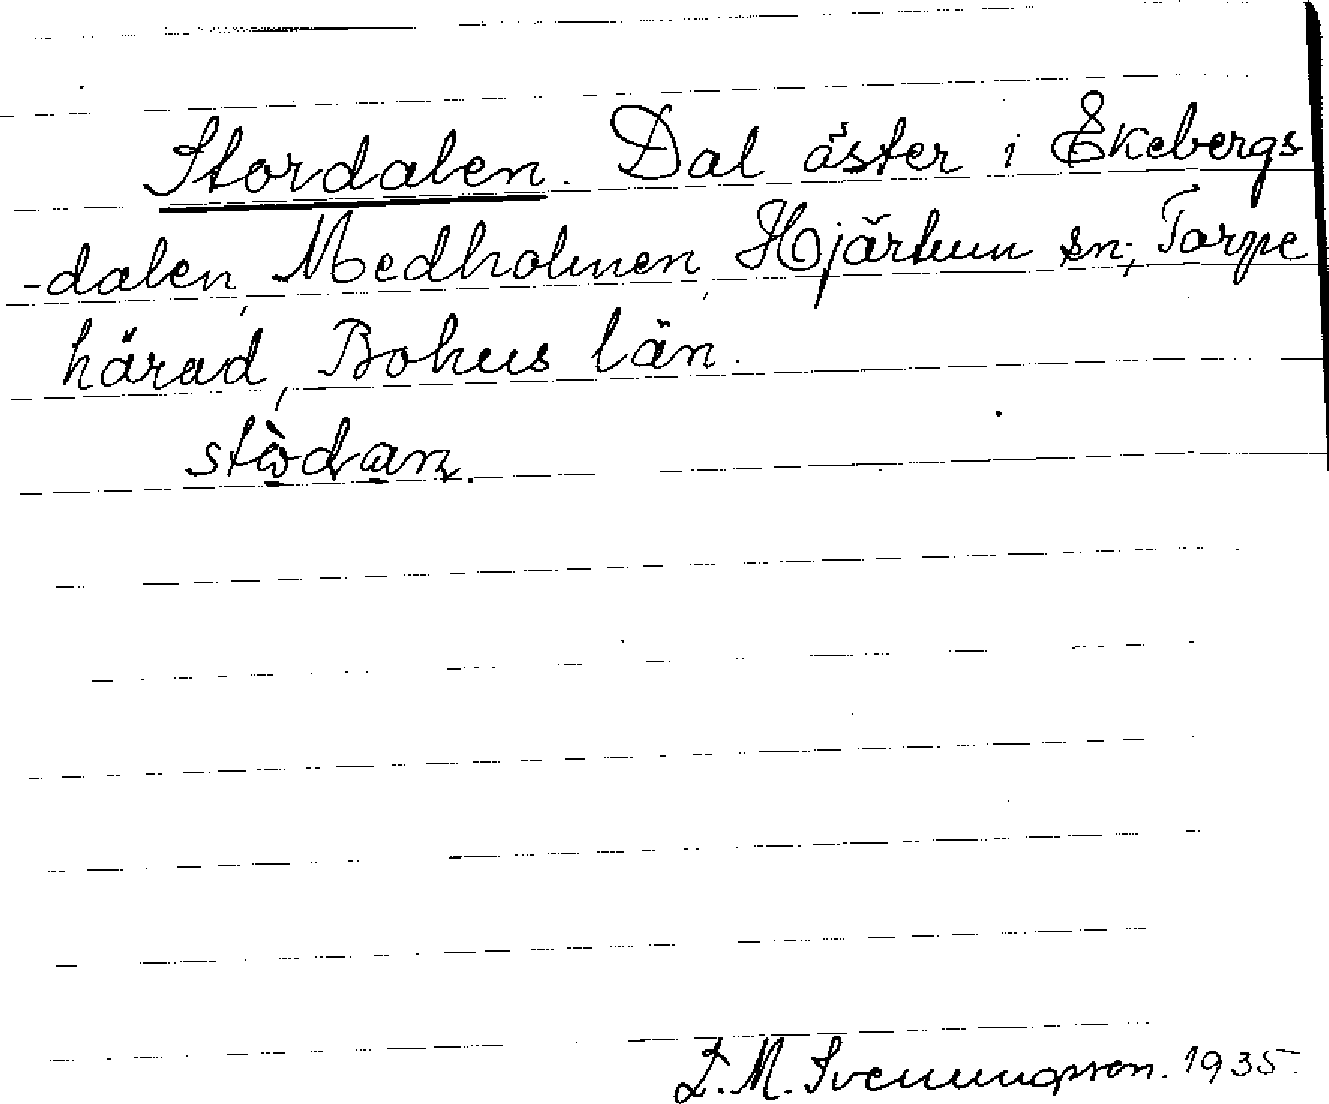 Stordalen. Dal öster i Ekebergs
-dalen, Medholmen, Hjärtum sn; Torpe
härad, Bohus län.
stòdan.
I. M. Svenungsson. 1935.